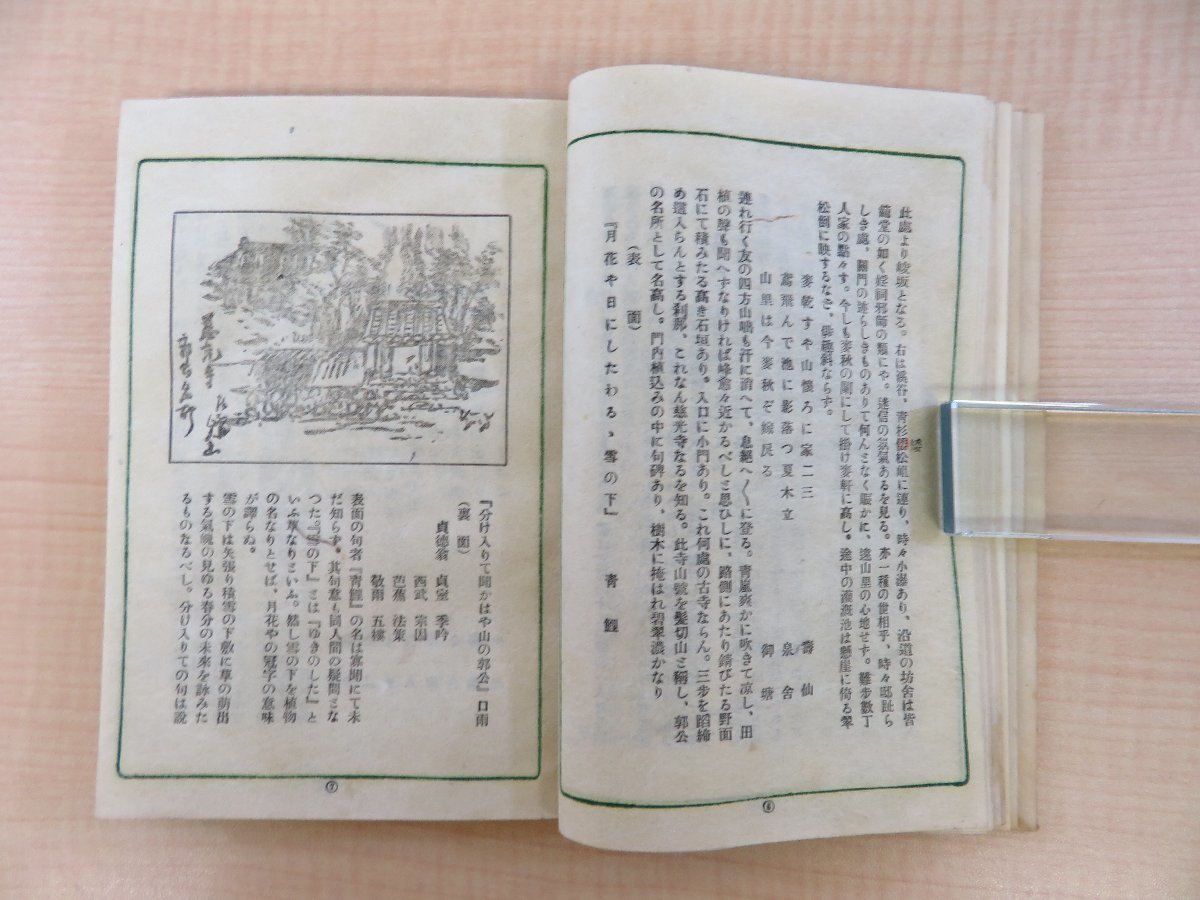 此處より峻坂となる。右は溪谷、青杉松岨に連り、時々小瀑あり、沿道の坊舍は皆
籠堂の如く婬祠邪師の類にや。迷信の氣あるを見る。亦一種の世相乎、時々邸趾ら
しき處、關門の迹らしきものありて何んとなく賑かに、遠山里の心地せず。難步數丁
人家の點々す。今しも麥秋の閑にして掛け麥軒に高し。途中の灌漑池は懸崖に倚る翠
松倒に映するなき、俳趣斜ならず。
麥乾すや山懷ろに家二三 壽仙
鳶飛んで池に影落つ夏木立 泉舍
山里は今麥秋ぞ嫁戾る 御塘
連れ行く友の四方山噺も汗に消へて、息絕へ〳〵に登る。青嵐爽かに吹きて凉し、田
植の聲も聞へずなりければ峰愈々近かるべしと思ひしに、路側にあたり錆びたる野面
石にて積みたる高き石垣あり。入口に小門あり。これ何處の古寺ならん。三步を蹈締
め還入らんとする刹那、これなん慈光寺なるを知る。此寺山號を髮切山と稱し、郭公
の名所として名高し。門內植込みの中に句碑あり、樹木に掩はれ碧翠濃かなり
(表面)
『月花や日にしたわるゝ雪の下』 靑鯉
⑥
慈光寺
郭公名所
『分け入りて聞かはや山の郭公』口雨
(裏面)
貞德翁 貞室 季吟
西武 宗因
芭蕉 法策
敬雨 五樓
表面の句者『靑鯉』の名は寡聞にて未
だ知らず。其句意も同人間の疑問とな
つた『雪の下』とは『ゆきのした』と
いふ草なりといふ。然し雪の下を植物
の名なりとせば、月花やの冠字の意味
が譯らぬ。
雪の下は矢張り積雪の下敷に草の萠出
する氣魄の見ゆる春分の未來を詠みた
るものなるべし。分け入りての句は說
⑦